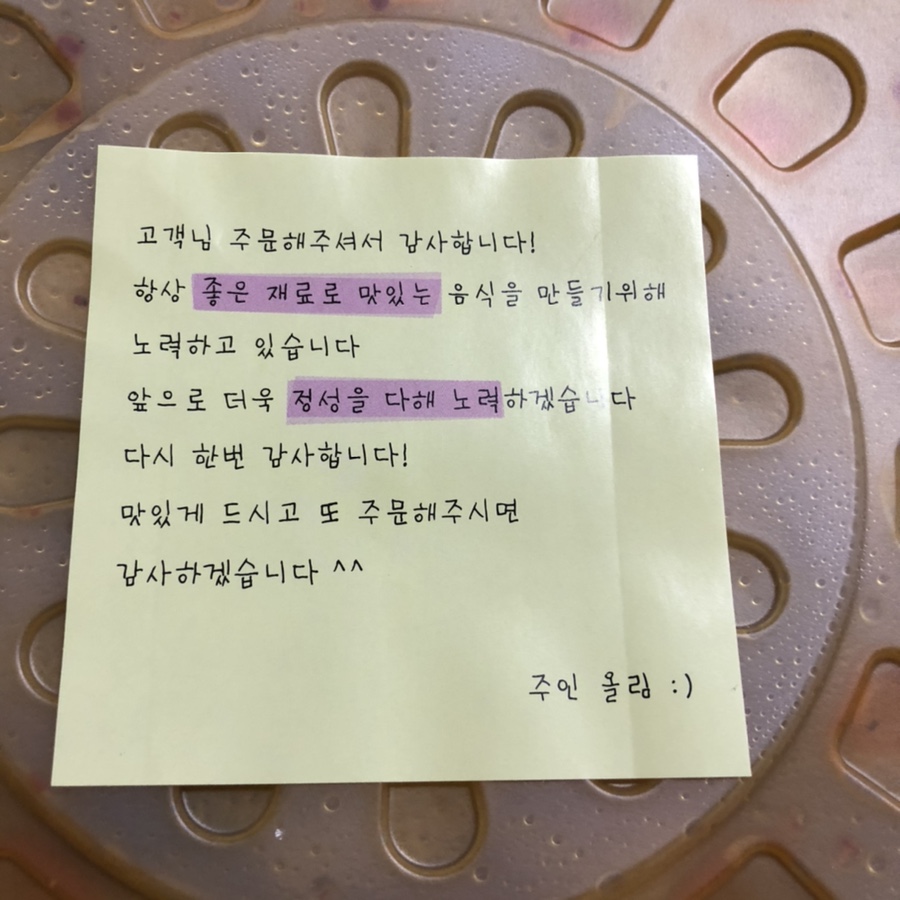 고객님 주문해주셔서 감사합니다!
항상 좋은 재료로 맛있는 음식을 만들기위해
노력하고 있습니다
앞으로 더욱 정성을 다해 노력하겠습니다
다시 한번 감사합니다!
맛있게 드시고 또 주문해주시면
감사하겠습니다 ^^
주인 올림 :)